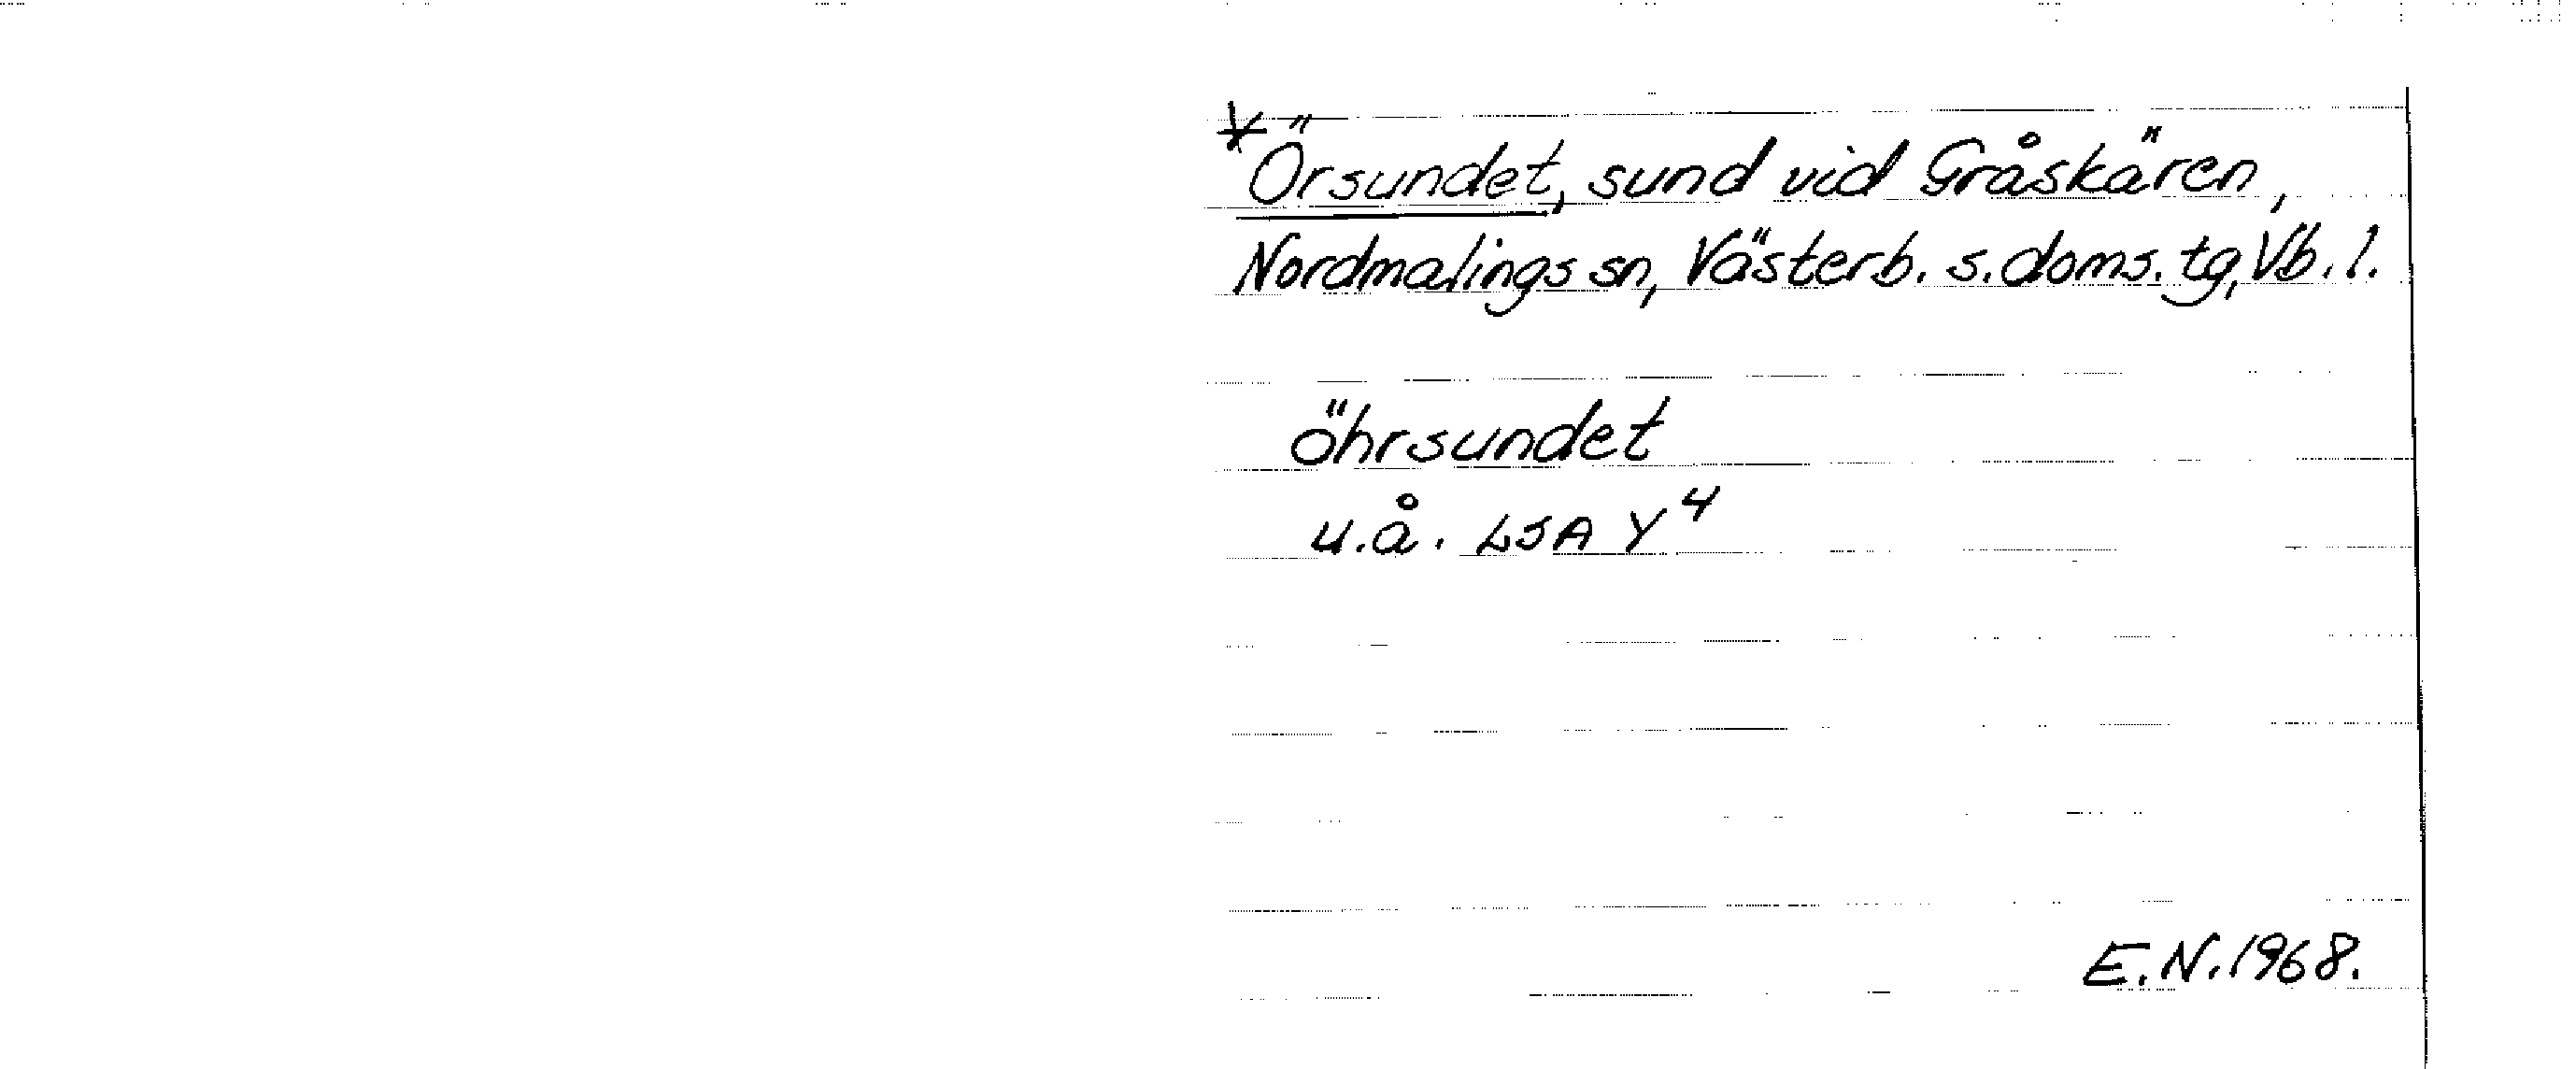 * Örsundet, sund vid Gråskären,
Nordmalings sn, Västerb. s. doms. tg, Vb. l.
öhrsundet
u.å. LSA Y4
E.N. 1968.